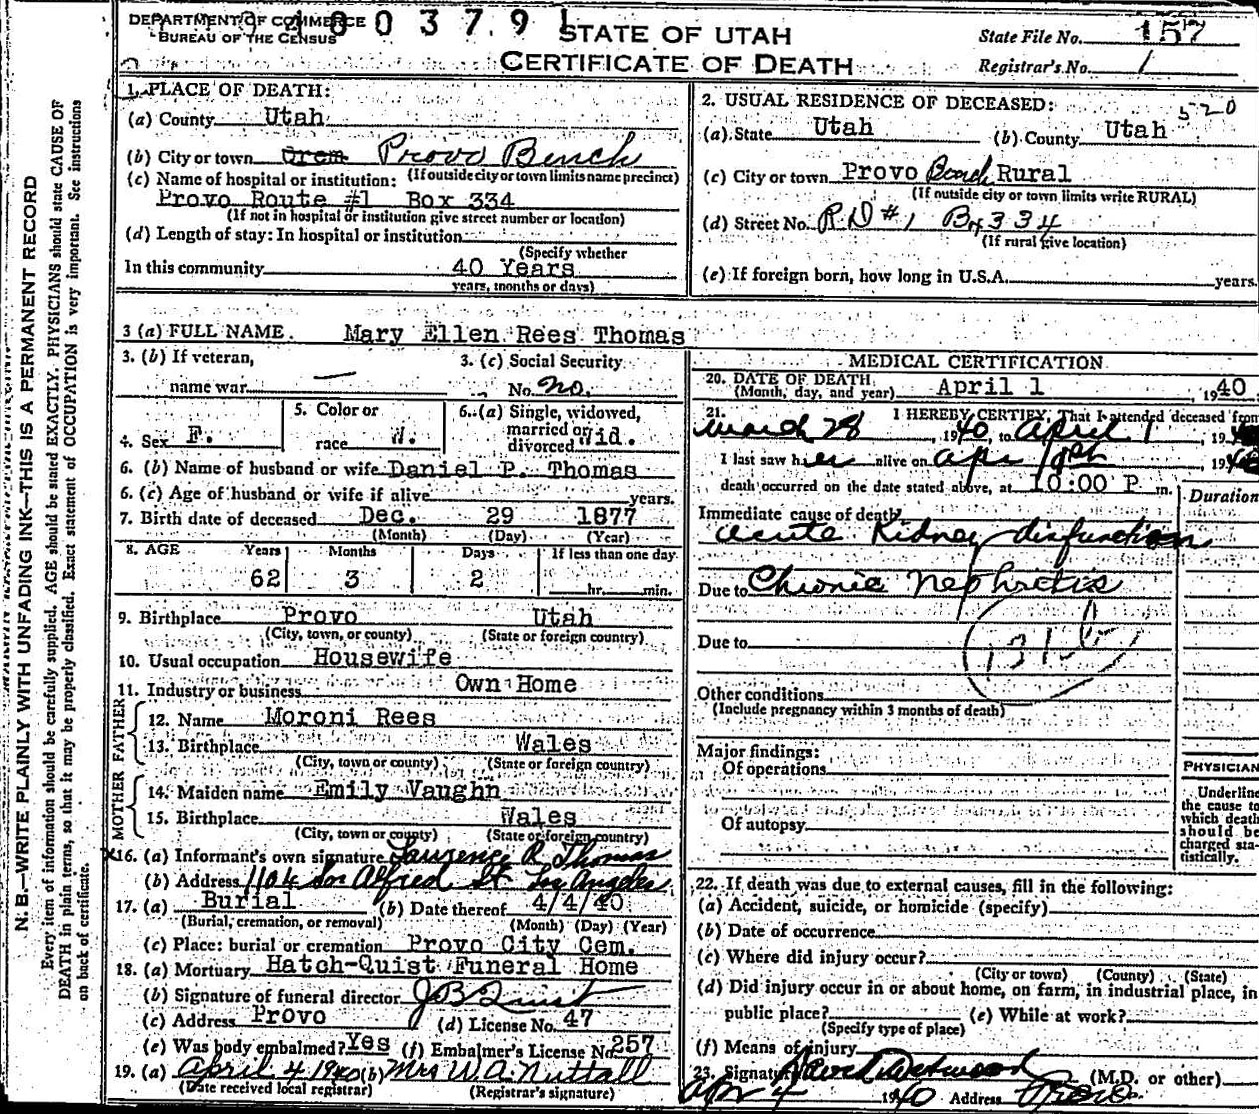 DEPARTMENT OF COMMERCE
BUREAU OF THE CENSUS
400379
STATE OF UTAH
CERTIFICATE OF DEATH
State File No. 157
Registrar's No. 1
N. B.—WRITE PLAINLY WITH UNFADING INK—THIS IS A PERMANENT RECORD
Every item of information should be carefully supplied. AGE should be stated EXACTLY. PHYSICIANS should state CAUSE OF
DEATH in plain terms, so that it may be properly classified. Exact statement of OCCUPATION is very important. See instructions
on back of certificate.
1. PLACE OF DEATH:
(a) County Utah
(b) City or town Orem Provo Bench
(If outside city or town limits name precinct)
(c) Name of hospital or institution:
Provo Route #1 Box 334
(If not in hospital or institution give street number or location)
(d) Length of stay: In hospital or institution
(Specify whether
In this community 40 Years
years, months or days)
2. USUAL RESIDENCE OF DECEASED: 520
(a) State Utah (b) County Utah
(c) City or town Provo Bench Rural
(If outside city or town limits write RURAL)
(d) Street No. R D #1 Bx 334
(If rural give location)
(e) If foreign born, how long in U.S.A. years.
3 (a) FULL NAME. Mary Ellen Rees Thomas
3. (b) If veteran,
name war —
3. (c) Social Security
No. no.
4. Sex F.
5. Color or
race W.
6. (a) Single, widowed,
married or
divorced Wid.
6. (b) Name of husband or wife Daniel P. Thomas
6. (c) Age of husband or wife if alive years.
7. Birth date of deceased Dec. 29 1877
(Month) (Day) (Year)
8. AGE Years Months Days If less than one day
62 3 2 hr. min.
9. Birthplace Provo Utah
(City, town, or county) (State or foreign country)
10. Usual occupation Housewife
11. Industry or business Own Home
FATHER
12. Name Moroni Rees
13. Birthplace Wales
(City, town or county) (State or foreign country)
MOTHER
14. Maiden name Emily Vaughn
15. Birthplace Wales
(City, town or county) (State or foreign country)
x16. (a) Informant's own signature Lawrence R Thomas
(b) Address 1104 So Alfred St Los Angeles
17. (a) Burial (b) Date thereof 4/4/40
(Burial, cremation, or removal) (Month) (Day) (Year)
(c) Place: burial or cremation Provo City Cem.
18. (a) Mortuary Hatch-Quist Funeral Home
(b) Signature of funeral director J B Quist
(c) Address Provo (d) License No. 47
(e) Was body embalmed? Yes (f) Embalmer's License No 257
19. (a) April 4 1940 (b) Mrs W. A. Nuttall
(Date received local registrar) (Registrar's signature)
MEDICAL CERTIFICATION
20. DATE OF DEATH
(Month, day, and year) April 1, 1940.
21. I HEREBY CERTIFY, That I attended deceased from
March 28, 1940, to April 1, 19
I last saw her alive on Apr 19
death occurred on the date stated above, at 10:00 P m.
Duration
Immediate cause of death
acute Kidney disfunction
Due to Chronic Nephritis
131b
Due to
Other conditions
(Include pregnancy within 3 months of death)
Major findings:
Of operations
Of autopsy
PHYSICIAN
Underline
the cause to
which death
should be
charged sta-
tistically.
22. If death was due to external causes, fill in the following:
(a) Accident, suicide, or homicide (specify)
(b) Date of occurrence
(c) Where did injury occur?
(City or town) (County) (State)
(d) Did injury occur in or about home, on farm, in industrial place, in
public place? (e) While at work?
(Specify type of place)
(f) Means of injury
23. Signature Westwood (M.D. or other)
Apr 4 1940 Address Provo